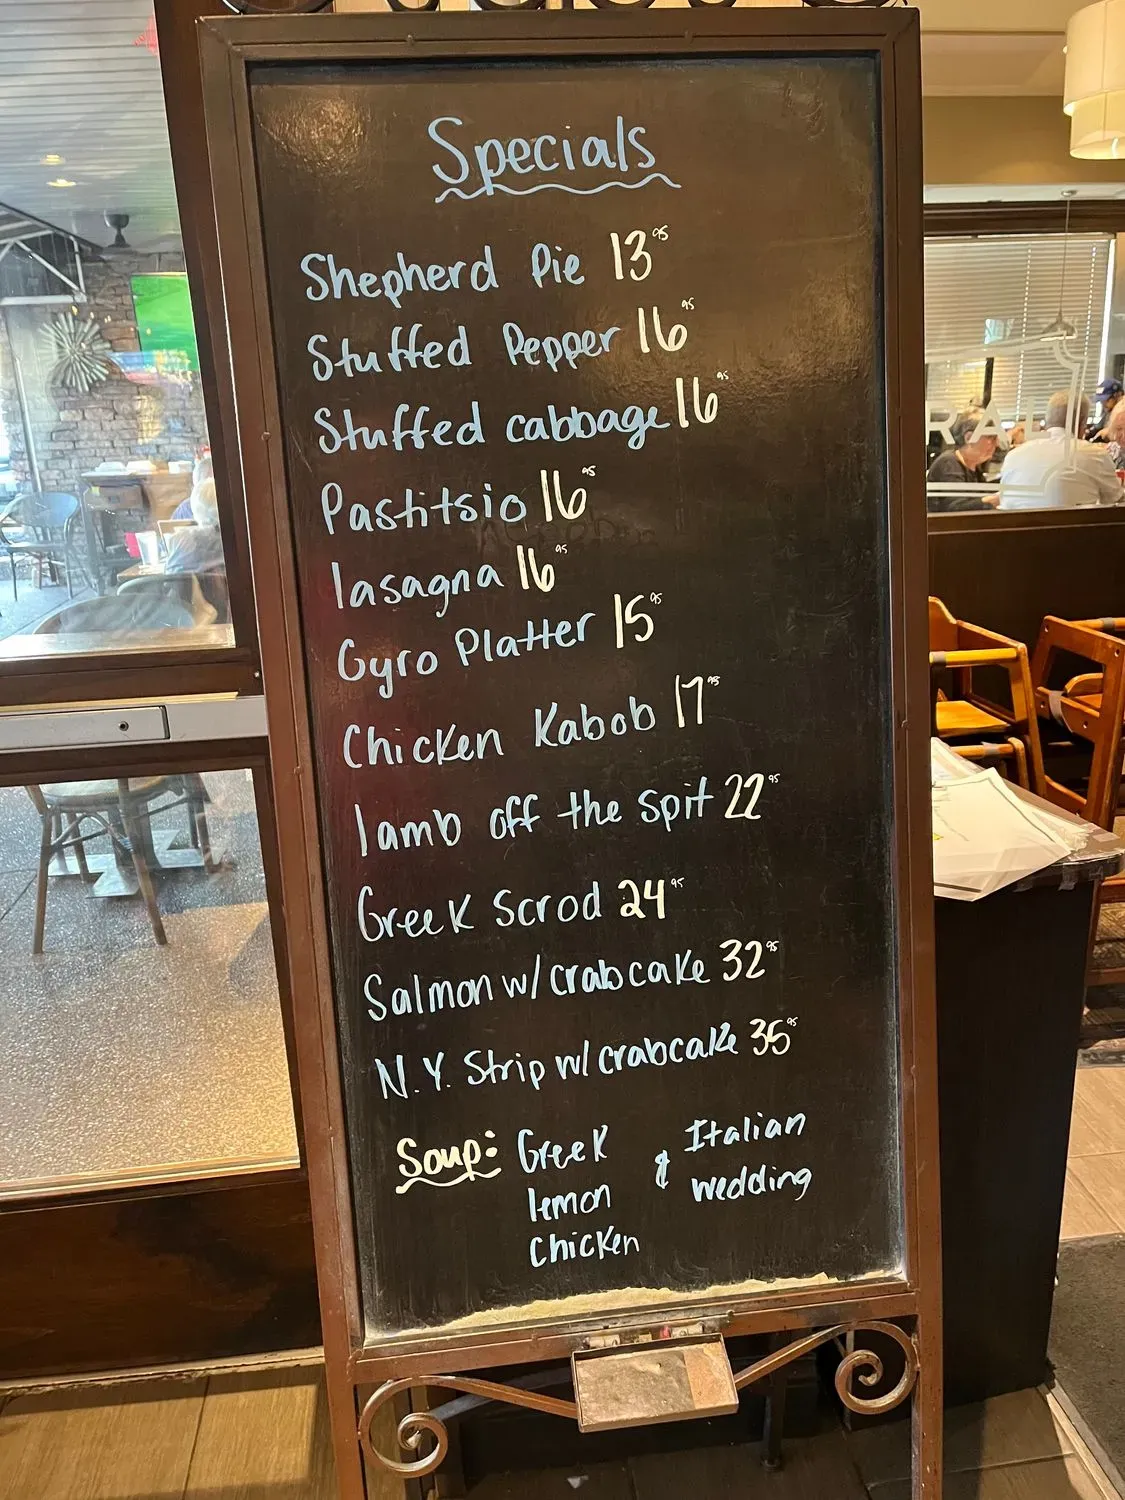 Specials
Shepherd Pie 13.95
Stuffed Pepper 16.95
Stuffed cabbage 16.95
Pastitsio 16.95
lasagna 16.95
Gyro Platter 15.95
Chicken Kabob 17.95
lamb off the spit 22.95
Greek Scrod 24.95
Salmon w/ crabcake 32.95
N.Y. Strip w/ crabcake 35.95
Soup: Greek
lemon
Chicken
& Italian
wedding